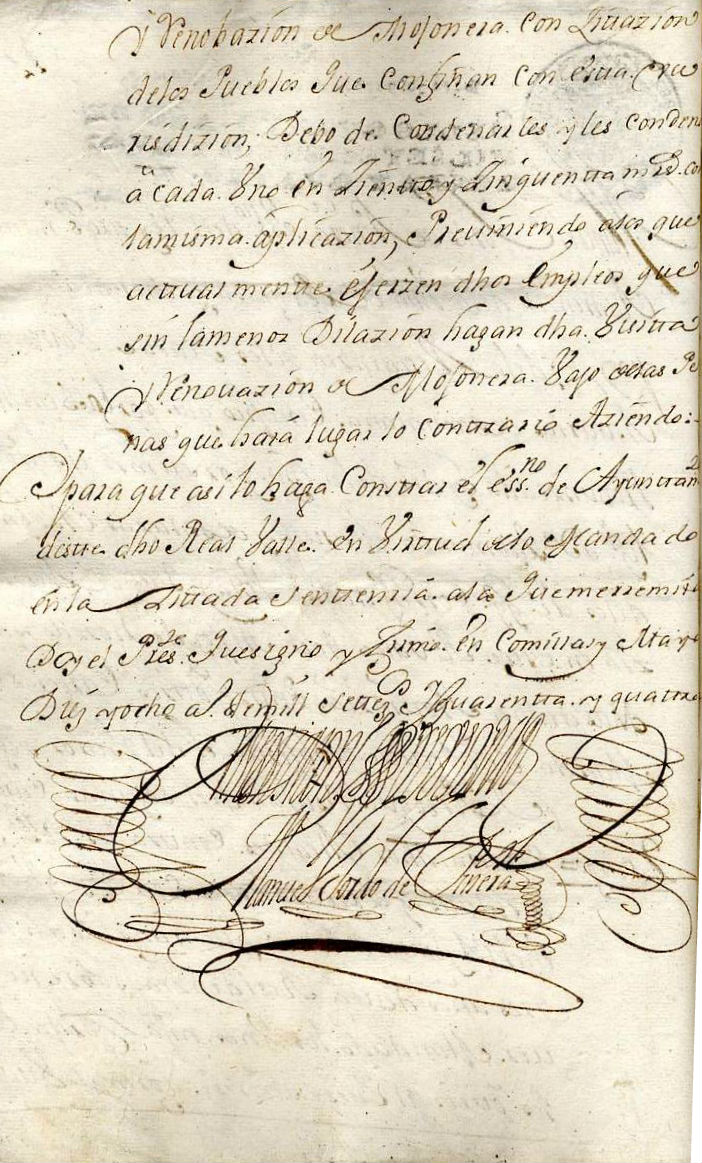 y Renobazion de Mojonera. Con Zitazion
delos Pueblos que Confinan con esta Ju
risdizion, Debo de Condenarles y les conden
a cada Uno en Ziento y Zinquentta mrs. con
lamisma aplicazion, Previniendo alos que
actualmentte Ejerzen dhos Empleos que
sin lamenor Dilazion hagan dha. Visitta
y Renovazion de Mojonera. Vajo delas Pe
nas que hará lugar lo Contrario Aziendo:
Ypara que asi lo haga Constrar el essno. de Ayunttam
destte dho Real Valle. en Virttud delo Mandado
en la Zittada sentenzia. ala que merremito
Doy el Presse. que signo y firmo. en Comillas y
Diez yocho de mill settez. y quarentta. y quattro
Manuel de